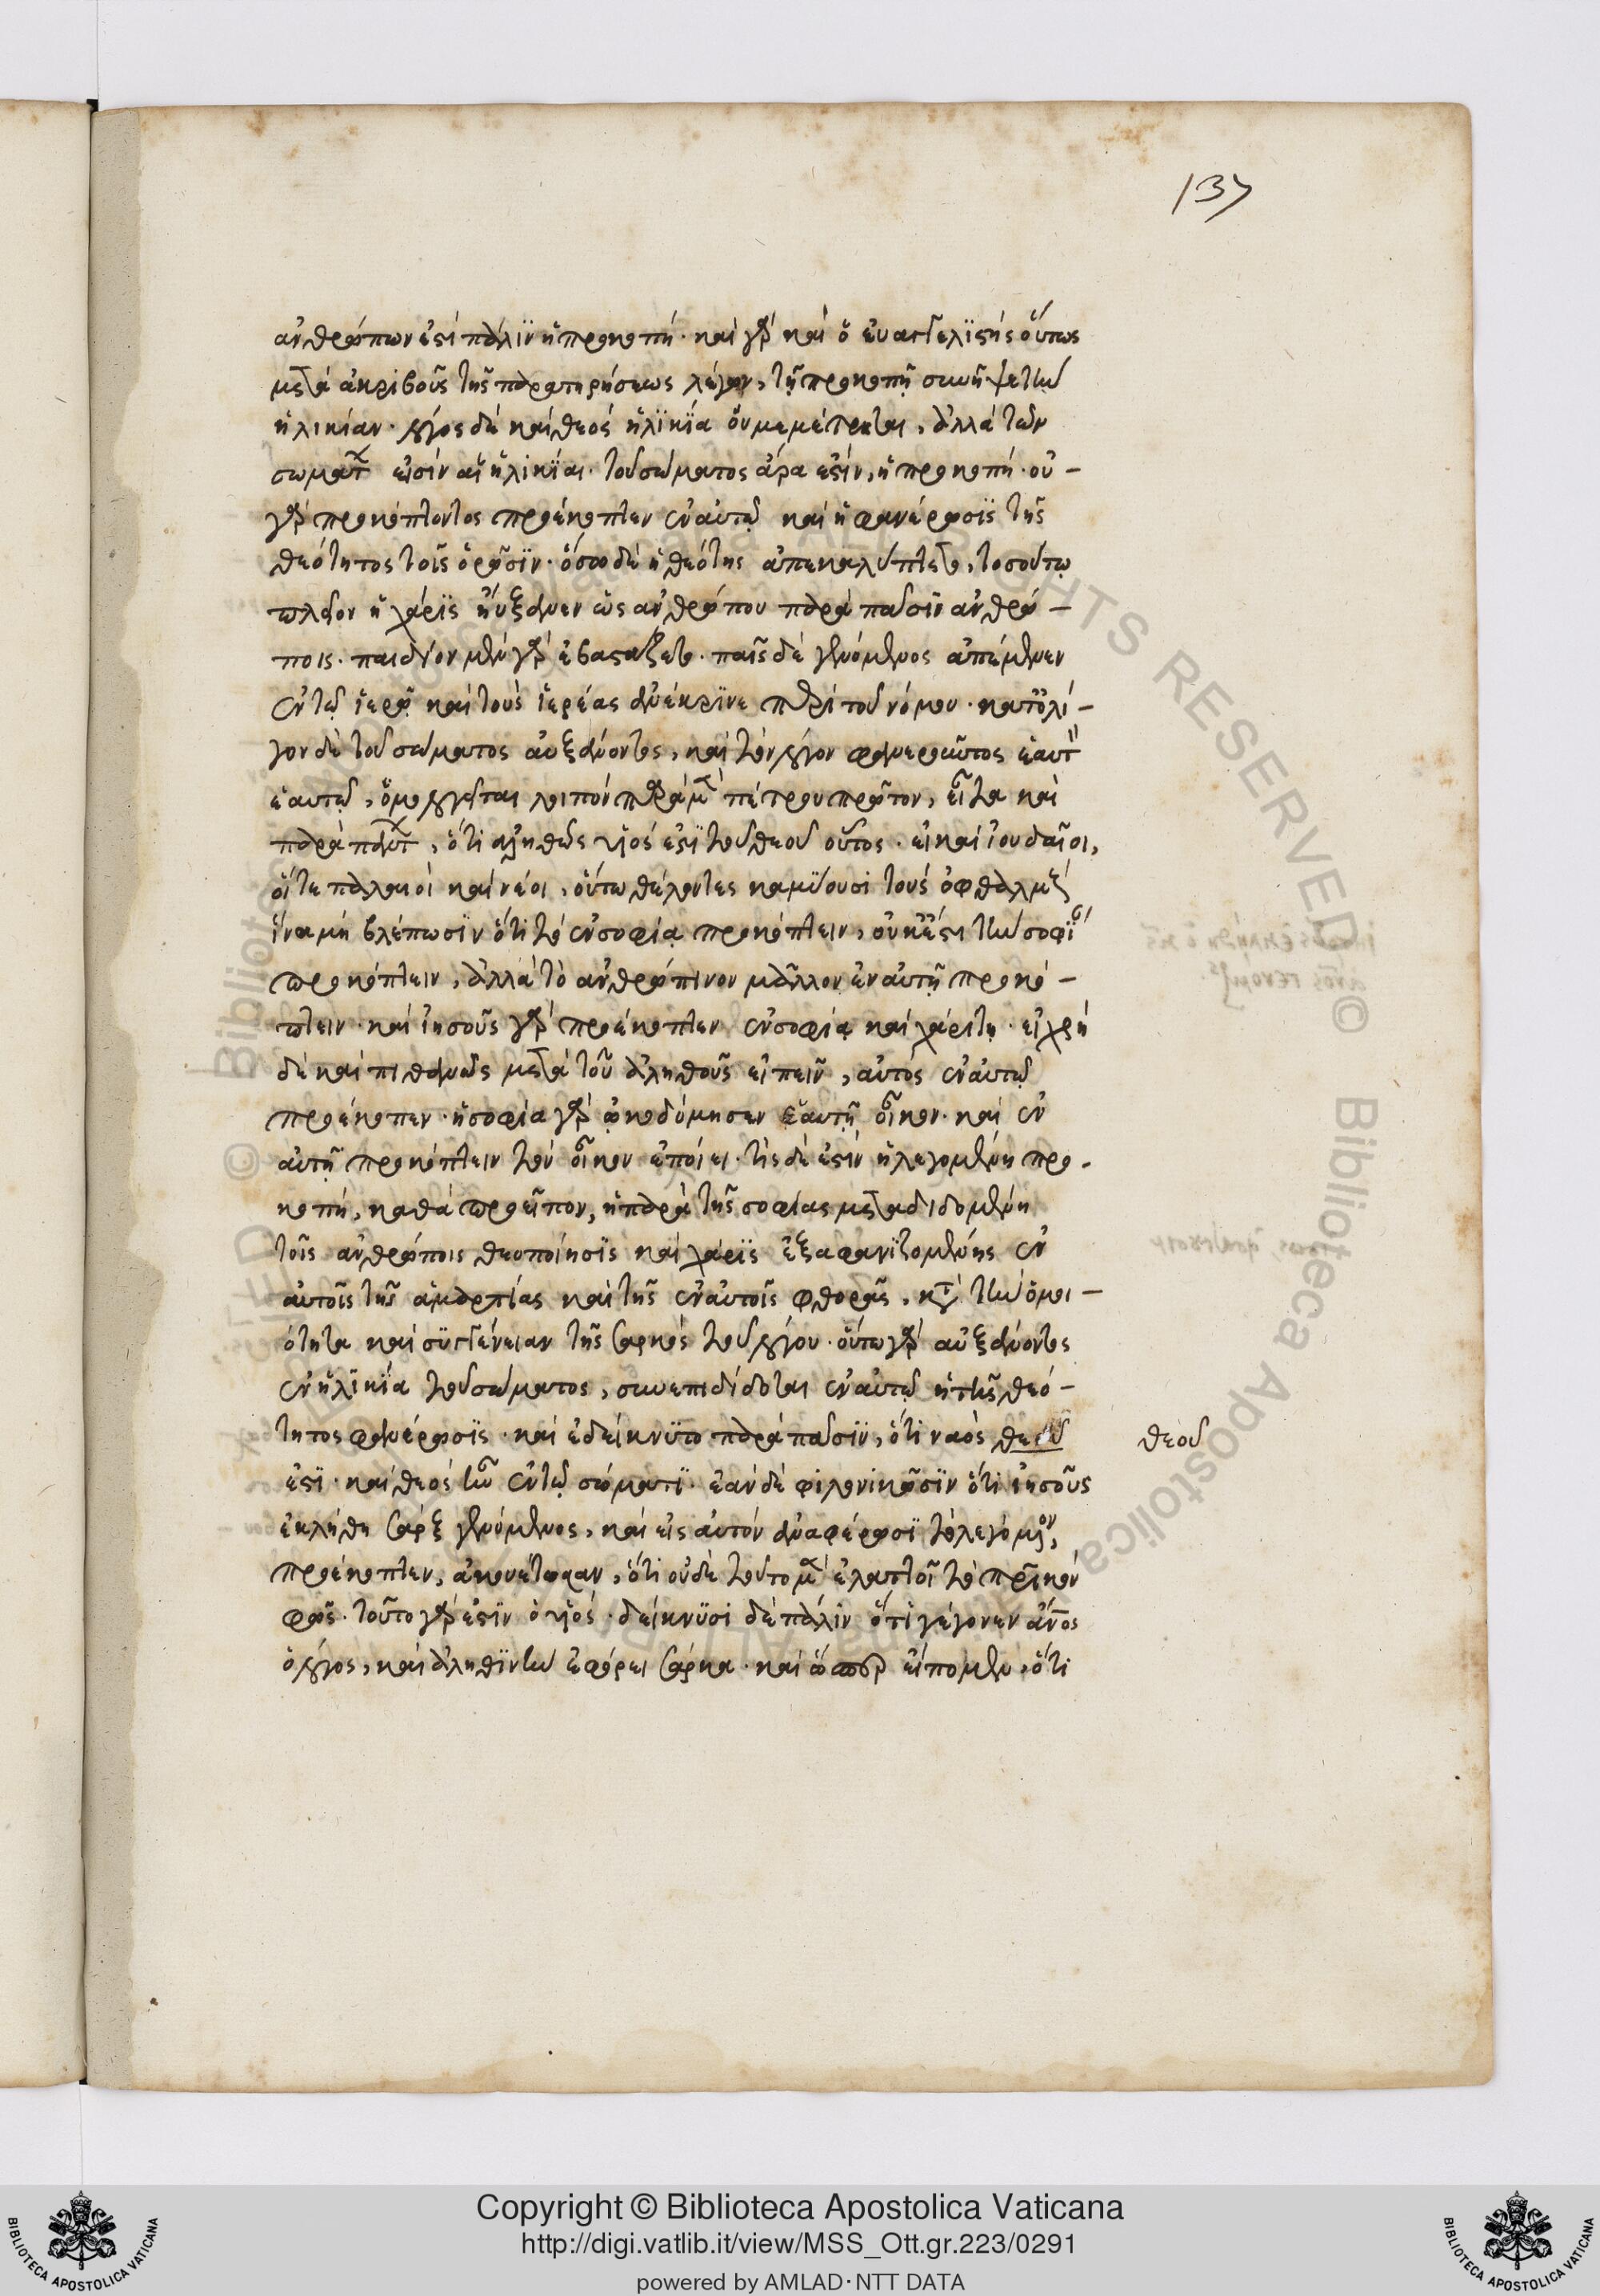 137
ἀνθρώπων ἐστὶ πάλιν ἡ προκοπή· καὶ γὰρ καὶ ὁ εὐαγγελιστὴς οὕτως
μετὰ ἀκριβοῦς τῆς παρατηρήσεως λέγων, τῇ προκοπῇ συνῆψε τὴν
ἡλικίαν· λόγος δὲ καὶ θεὸς ἡλικία οὐ μεμέτρηται, ἀλλὰ τῶν
σωμάτων εἰσὶν αἱ ἡλικίαι· τοῦ σώματος ἄρα ἐστίν, ἡ προκοπή· οὐ –
γὰρ προκόπτοντος προέκοπτεν ἐν αὐτῷ καὶ ἡ φανέρωσις τῆς
θεότητος τοῖς ὁρῶσιν· ὅσῳ δὲ ἡ θεότης ἀπεκαλύπτετο, τοσούτῳ
πλεῖον ἡ χάρις ηὔξανεν ὡς ἀνθρώπου παρὰ πᾶσιν ἀνθρώ –
ποις· παιδίον μὲν γὰρ ἐβαστάζετο· παῖς δὲ γενόμενος ἀπέμενεν
ἐν τῷ ἱερῷ καὶ τοὺς ἱερέας ἀνέκρινε περὶ τοῦ νόμου· κατολί –
γον δὲ τοῦ σώματος αὐξάνοντος, καὶ τὸν λόγον φανεροῦντος ἑαυτ
ἑαυτῷ, ὁμολογεῖται λοιπὸν παρὰ μὲν πέτρου πρῶτον, εἶτα καὶ
παρὰ πάντων, ὅτι ἀληθῶς υἱός ἐστι τοῦ θεοῦ οὗτος· εἰ καὶ ἰουδαῖοι,
οἵ τε παλαιοὶ καὶ νέοι, οὕτω θέλοντες καμύουσι τοὺς ὀφθαλμοὺς
ἵνα μὴ βλέπωσιν ὅτι τὸ ἐν σοφίᾳ προκόπτειν, οὐκ ἔστι τὴν σοφίαν
προκόπτειν, ἀλλὰ τὸ ἀνθρώπινον μᾶλλον ἐν αὐτῇ προκό –
πτειν· καὶ ἰησοῦς γὰρ προέκοπτεν ἐν σοφίᾳ καὶ χάριτι· εἰ χρὴ
δὲ καὶ πιθανῶς μετὰ τοῦ ἀληθοῦς εἰπεῖν, αὐτὸς ἐν αὐτῷ
προέκοπεν· ἡ σοφία γὰρ ᾠκοδόμησεν ἑαυτῇ οἶκον· καὶ ἐν
αὐτῇ προκόπτειν τὸν οἶκον ἐποίει· τίς δὲ ἐστὶν ἡ λεγομένη προ-
κοπή, καθὰ προεῖπον, ἡ παρὰ τῆς σοφίας μεταδιδομένη
τοῖς ἀνθρώποις θεοποίησις καὶ χάρις ἐξαφανιζομένης ἐν
αὐτοῖς τῆς ἁμαρτίας καὶ τῆς ἐν αὐτοῖς φθορᾶς, κατὰ τὴν ὁμοι –
ότητα καὶ συγγένειαν τῆς σαρκὸς τοῦ λόγου· οὕτω γὰρ αὐξάνοντος
ἐν ἡλικίᾳ τοῦ σώματος, συνεπεδίδοται ἐν αὐτῷ ἡ τῆς θεό –
τητος φανέρωσις· καὶ ἐδείκνυτο παρὰ πᾶσιν, ὅτι ναὸς θεοῦ
θεοῦ
ἐστι· καὶ θεὸς ἦν ἐν τῷ σώματι· ἐὰν δὲ φιλονικῶσιν ὅτι ἰησοῦς
ἐκλήθη σὰρξ γενόμενος, καὶ εἰς αὐτὸν ἀναφέρωσι τὸ λεγόμενον,
προέκοπτεν, ἀκουέτωσαν, ὅτι οὐδὲ τοῦτο μὲν ἐλαττοῖ τὸ πατρικὸν
φῶς· τοῦτο γάρ ἐστιν ὁ υἱός· δείκνυσι δὲ πάλιν ὅτι γέγονεν ἄνος
ὁ λόγος, καὶ ἀληθινὴν ἐφόρει σάρκα· καὶ ὥσπερ εἴπομεν, ὅτι